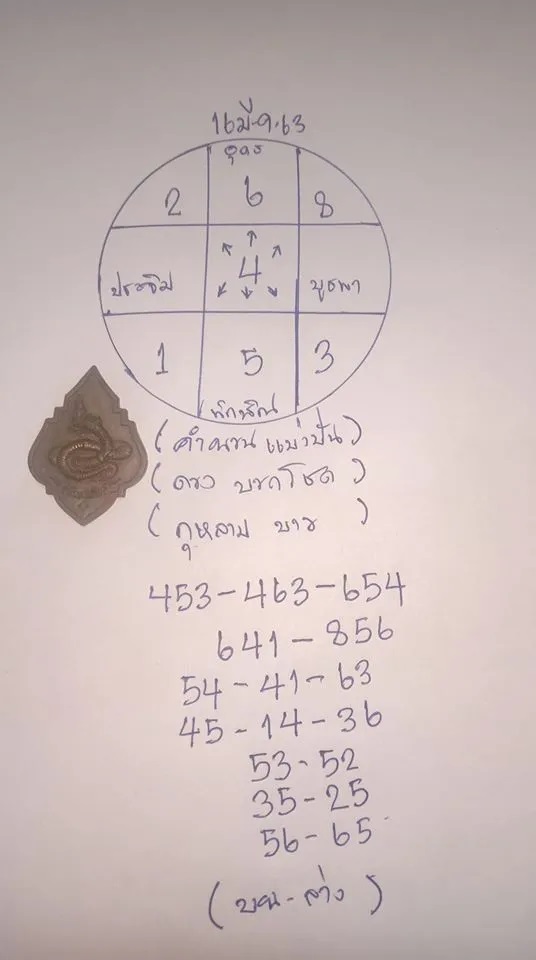 16มี.ค.63
อุดร
2 6 8
ปรจิม 4 บูรพา
1 5 3
ทักษิณ
(คำนวน แม่นปืน)
(ดวง บวกโชค)
(กุหลาบ ขาว)
453-463-654
641-856
54-41-63
45-14-36
53-52
35-25
56-65
(บน-ล่าง)